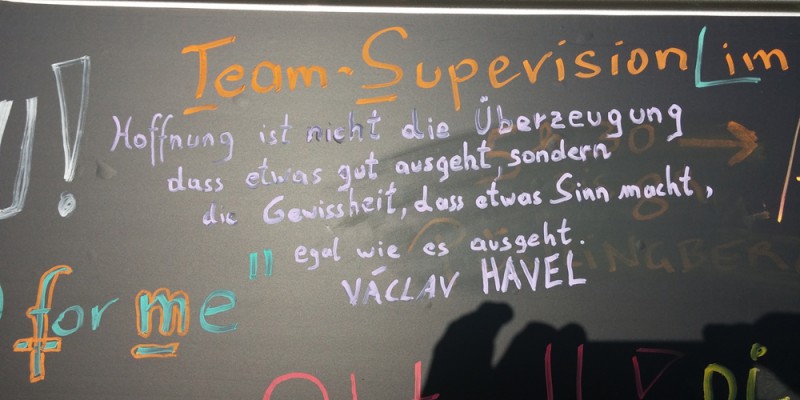 Team-Supervision Lim
Hoffnung ist nicht die Überzeugung
dass etwas gut ausgeht, sondern
die Gewissheit, dass etwas Sinn macht,
egal wie es ausgeht.
VÁCLAV HAVEL
for me"